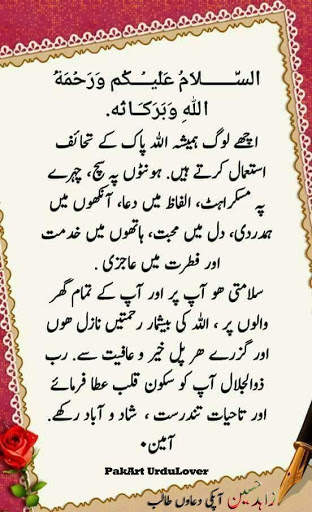 السّلامُ عَلیکُم وَرَحمَةُ
اللهِ وَبَرَکَاتُه.
اچھے لوگ ہمیشہ اللہ پاک کے تحائف
استعمال کرتے ہیں. ہونٹوں پہ سچ، چہرے
پہ مسکراہٹ، الفاظ میں دعا، آنکھوں میں
ہمدردی، دل میں محبت، ہاتھوں میں خدمت
اور فطرت میں عاجزی .
سلامتی ھو آپ پر اور آپ کے تمام گھر
والوں پر ، اللہ کی بیشمار رحمتیں نازل ھوں
اور گزرے ھر پل خیر و عافیت سے. رب
ذوالجلال آپ کو سکون قلب عطا فرمائے
اور تاحیات تندرست ، شاد و آباد رکھے.
آمین.
PakArt UrduLover
زاہد حسین آپکی دعاوں طالب